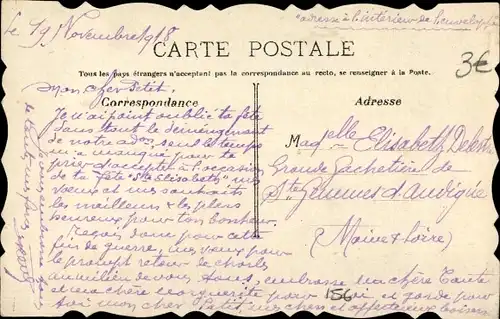 le 19 Novembre 1918
(adresse à l'intérieur de l'enveloppe)
CARTE POSTALE
Tous les pays étrangers n'acceptant pas la correspondance au recto, se renseigner à la Poste.
3€
Correspondance
Adresse
Mon cher Petit,
Je n'ai point oublié ta fête
dans tout le déménagement
de notre seul le temps
m'a manqué pour te
prier d'accepter à l'occasion
de ta fête "Ste Elisabeth" mes
vœux et mes souhaits
les meilleurs & les plus
heureux pour ton bonheur.
Reçois donc pour cette
fin de guerre, mes vœux pour
le prompt retour de
au milieu de vous tous, embrasse ma chère Tante
et ma chère Marguerite pour et garde pour
toi mon cher Petit, mes chers et affectueux baisers
Melle Elisabeth
Grande
Ste Gemmes d'Andigné
(Maine & Loire)
156